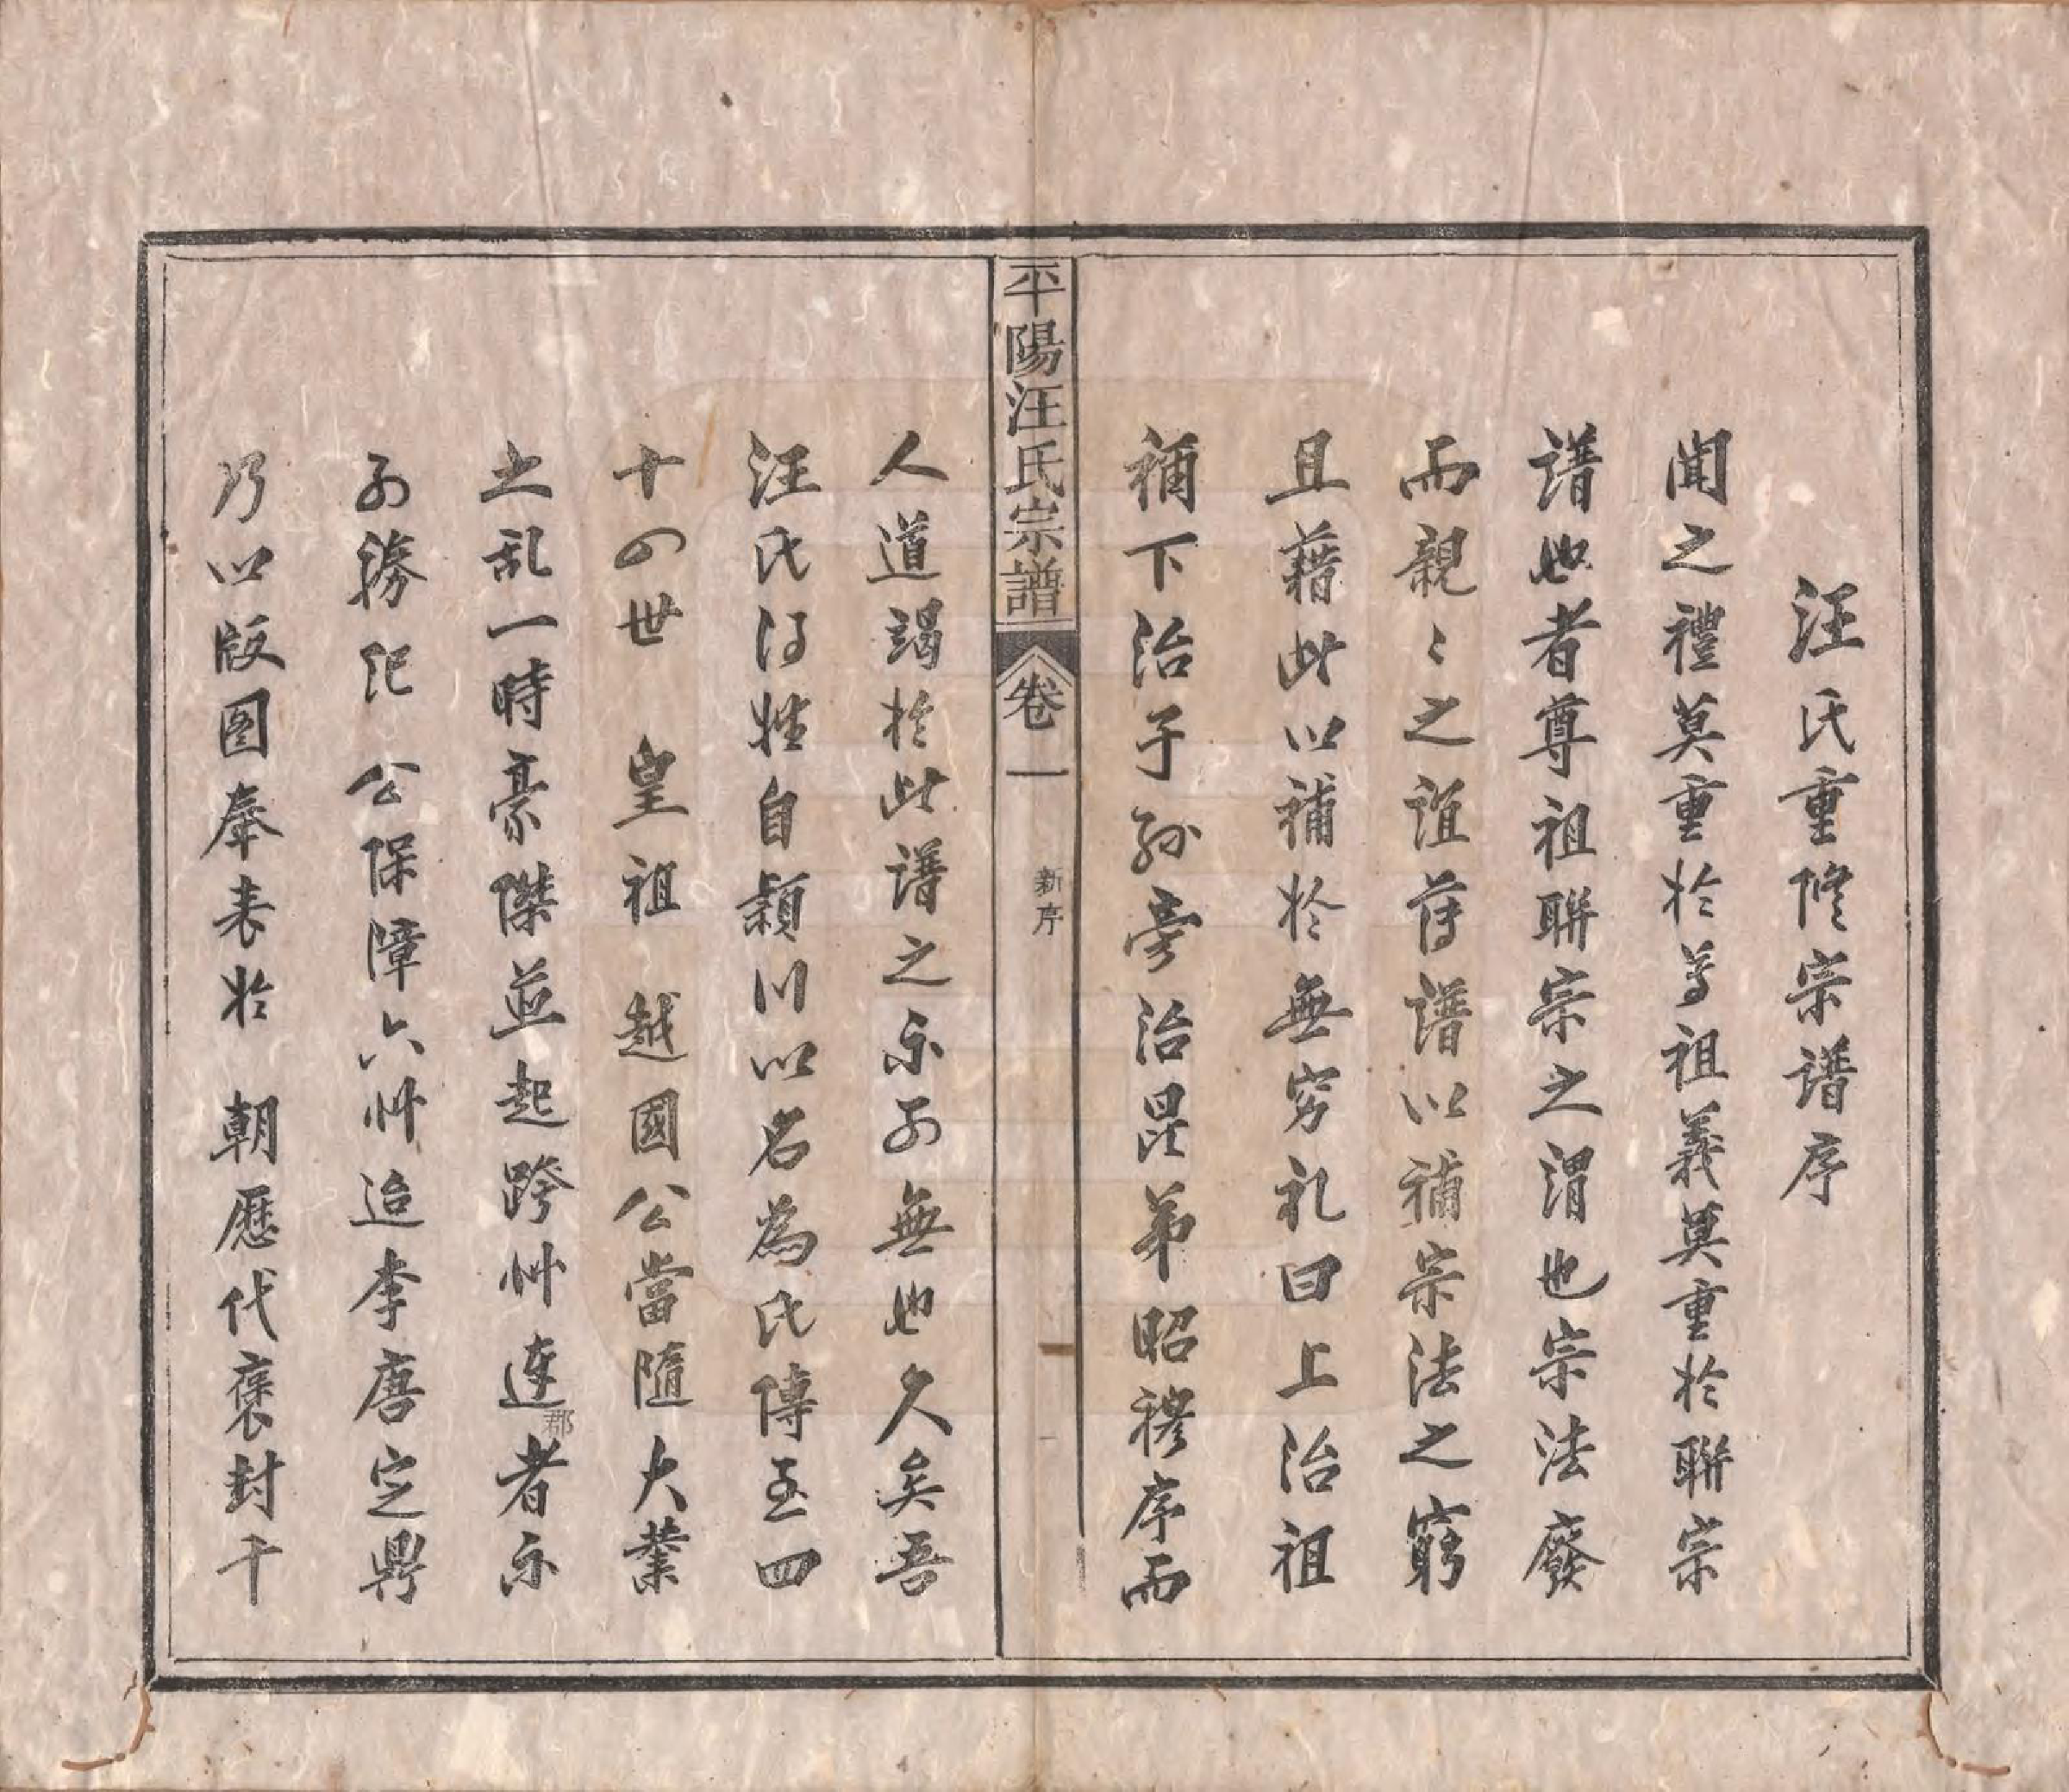 汪氏重修宗譜序
聞之禮莫重於尊祖義莫重於聯宗
譜也者尊祖聯宗之謂也宗法廢
而親〻之誼薄譜以補宗法之窮
且藉此以補於無窮礼曰上治祖
禰下治子孫旁治昆弟昭穆序而
平陽汪氏宗譜 卷一 新序 一
人道竭於此譜之不可無也久矣吾
汪氏得姓自潁川以名為氏傳至四
十四世 皇祖 越國公當隨大業
之乱一時豪傑並起跨州連郡者不
可勝紀 公保障六州迨李唐定鼎
乃以版圖奉表於 朝歷代褒封干